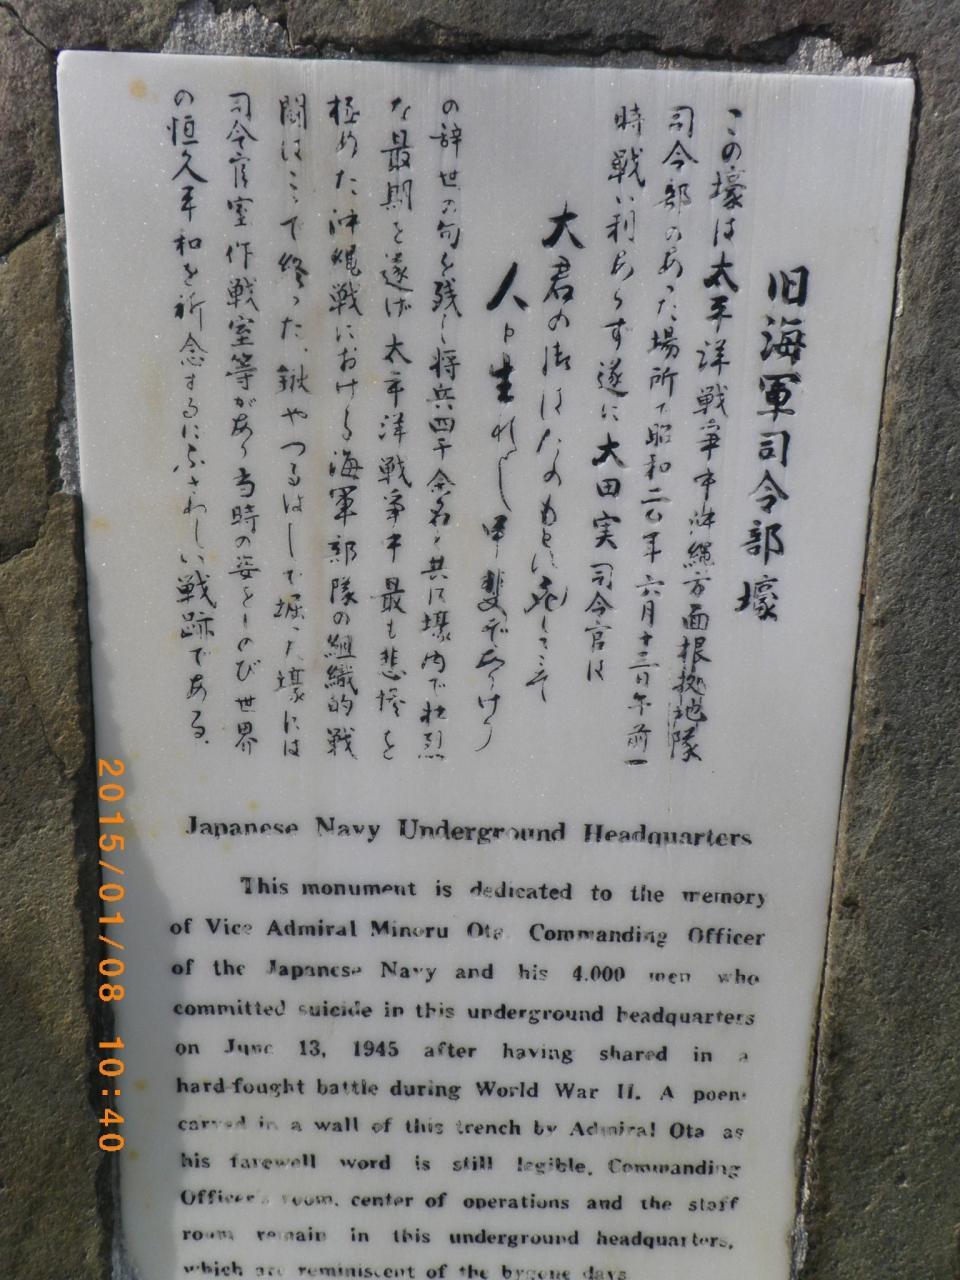 旧海軍司令部壕
この壕は太平洋戦争中沖縄方面根拠地隊
司令部のあった場所で昭和二〇年六月十三日午前一
時戦い利あらず遂に大田実司令官は
大君の御はたのもとに死してこそ
人と生れし甲斐ぞありけり
の辞世の句を残し将兵四千余名と共に壕内で壮烈
な最期を遂げ太平洋戦争中最も悲惨を
極めた沖縄戦における海軍部隊の組織的戦
闘はここで終った、鍬やつるはしで掘った壕には
司令官室作戦室等があり当時の姿をしのび世界
の恒久平和を祈念するにふさわしい戦跡である.
Japanese Navy Underground Headquarters
This monument is dedicated to the memory
of Vice Admiral Minoru Ota, Commanding Officer
of the Japanese Navy and his 4,000 men who
committed suicide in this underground headquarters
on June 13, 1945 after having shared in a
hard-fought battle during World War II. A poem
carved in a wall of this trench by Admiral Ota as
his farewell word is still legible. Commanding
Officer's room, center of operations and the staff
room remain in this underground headquarters,
which are reminiscent of the bygone days
2015/01/08 10:40